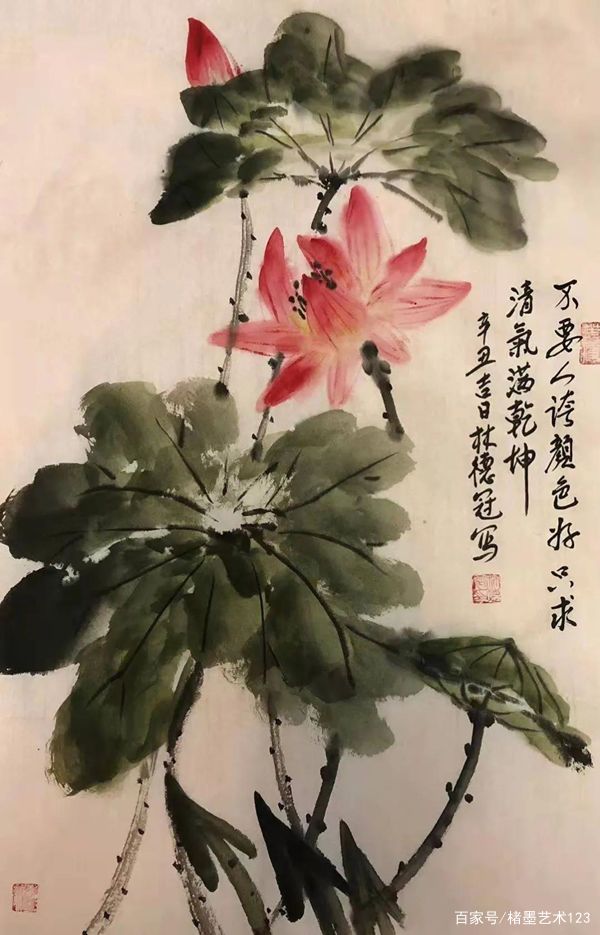 不要人誇顏色好只求
清氣滿乾坤
辛丑吉日林德冠写
百家号/楮墨艺术123